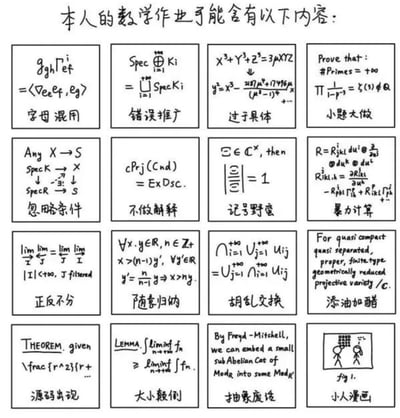 本人的数学作业可能含有以下内容：
g_{gh}Γ^i_{ef}
=⟨∇_e e_f, e_g⟩
字母混用
Spec ⊕ K_i
= ∐ Spec K_i
错误推广
X³+Y³+Z³=3μXYZ
⇓
过于具体
Prove that:
#Primes = +∞
∏ 1/(1-p^{-s}) = ζ(s) ∉ Q
小题大做
Any X→S
Spec K → X
Spec R → S
忽略条件
cPrj(Cnd)
= ExDsc.
不做解释
Ξ∈ℂ^x, then
= 1
记号野蛮
暴力计算
lim lim = lim lim
|I|<+∞, J filtered
正反不分
∀x.y∈R, n∈Z+
x>(n-1)y', ∀y'∈R
y'= n/(n-1) y ⇒ x>ny.
随意归纳
⋂_{i=1}^{+∞} ⋃_{j=1}^{+∞} U_{ij}
=⋃_{j=1}^{+∞} ⋂_{i=1}^{+∞} U_{ij}
胡乱交换
For quasi compact
quasi separated,
proper, finite type
geometrically reduced
projective variety /ℂ.
添油加醋
THEOREM. given
\frac{r^2}{r+
...
源码出现
LEMMA. ∫ liminf_{n→+∞} f_n
≥ liminf_{n→+∞} ∫ f_n
大小颠倒
By Freyd-Mitchell,
we can embed a small
sub Abelian Cat of
Mod_R into some Mod_{R'}
抽象废话
fig 1.
小人漫画